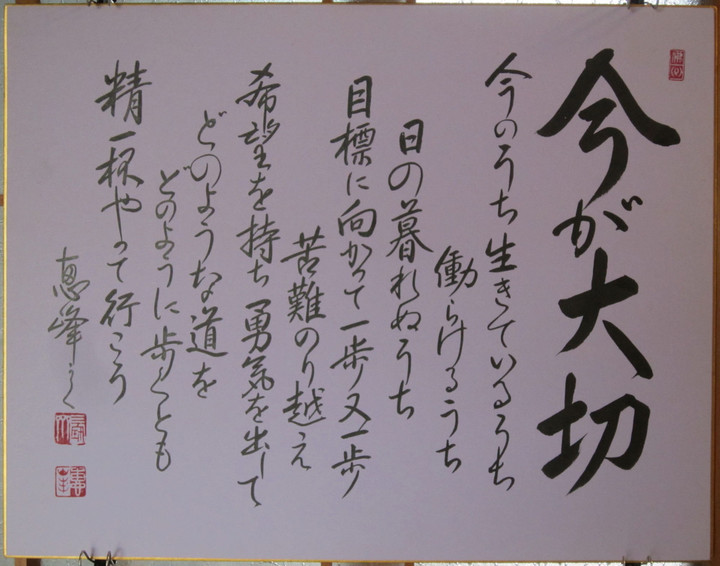 今が大切
今のうち生きているうち
働らけるうち
日の暮れぬうち
目標に向かって一歩又一歩
苦難のり越え
希望を持ち勇気を出して
どのような道を
どのように歩くとも
精一杯やって行こう
恵峰かく